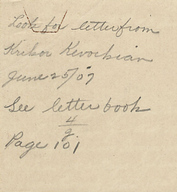 Look for letter from
Krikor Kevorkian
June 25/07
See letter book
4/2
Page 101